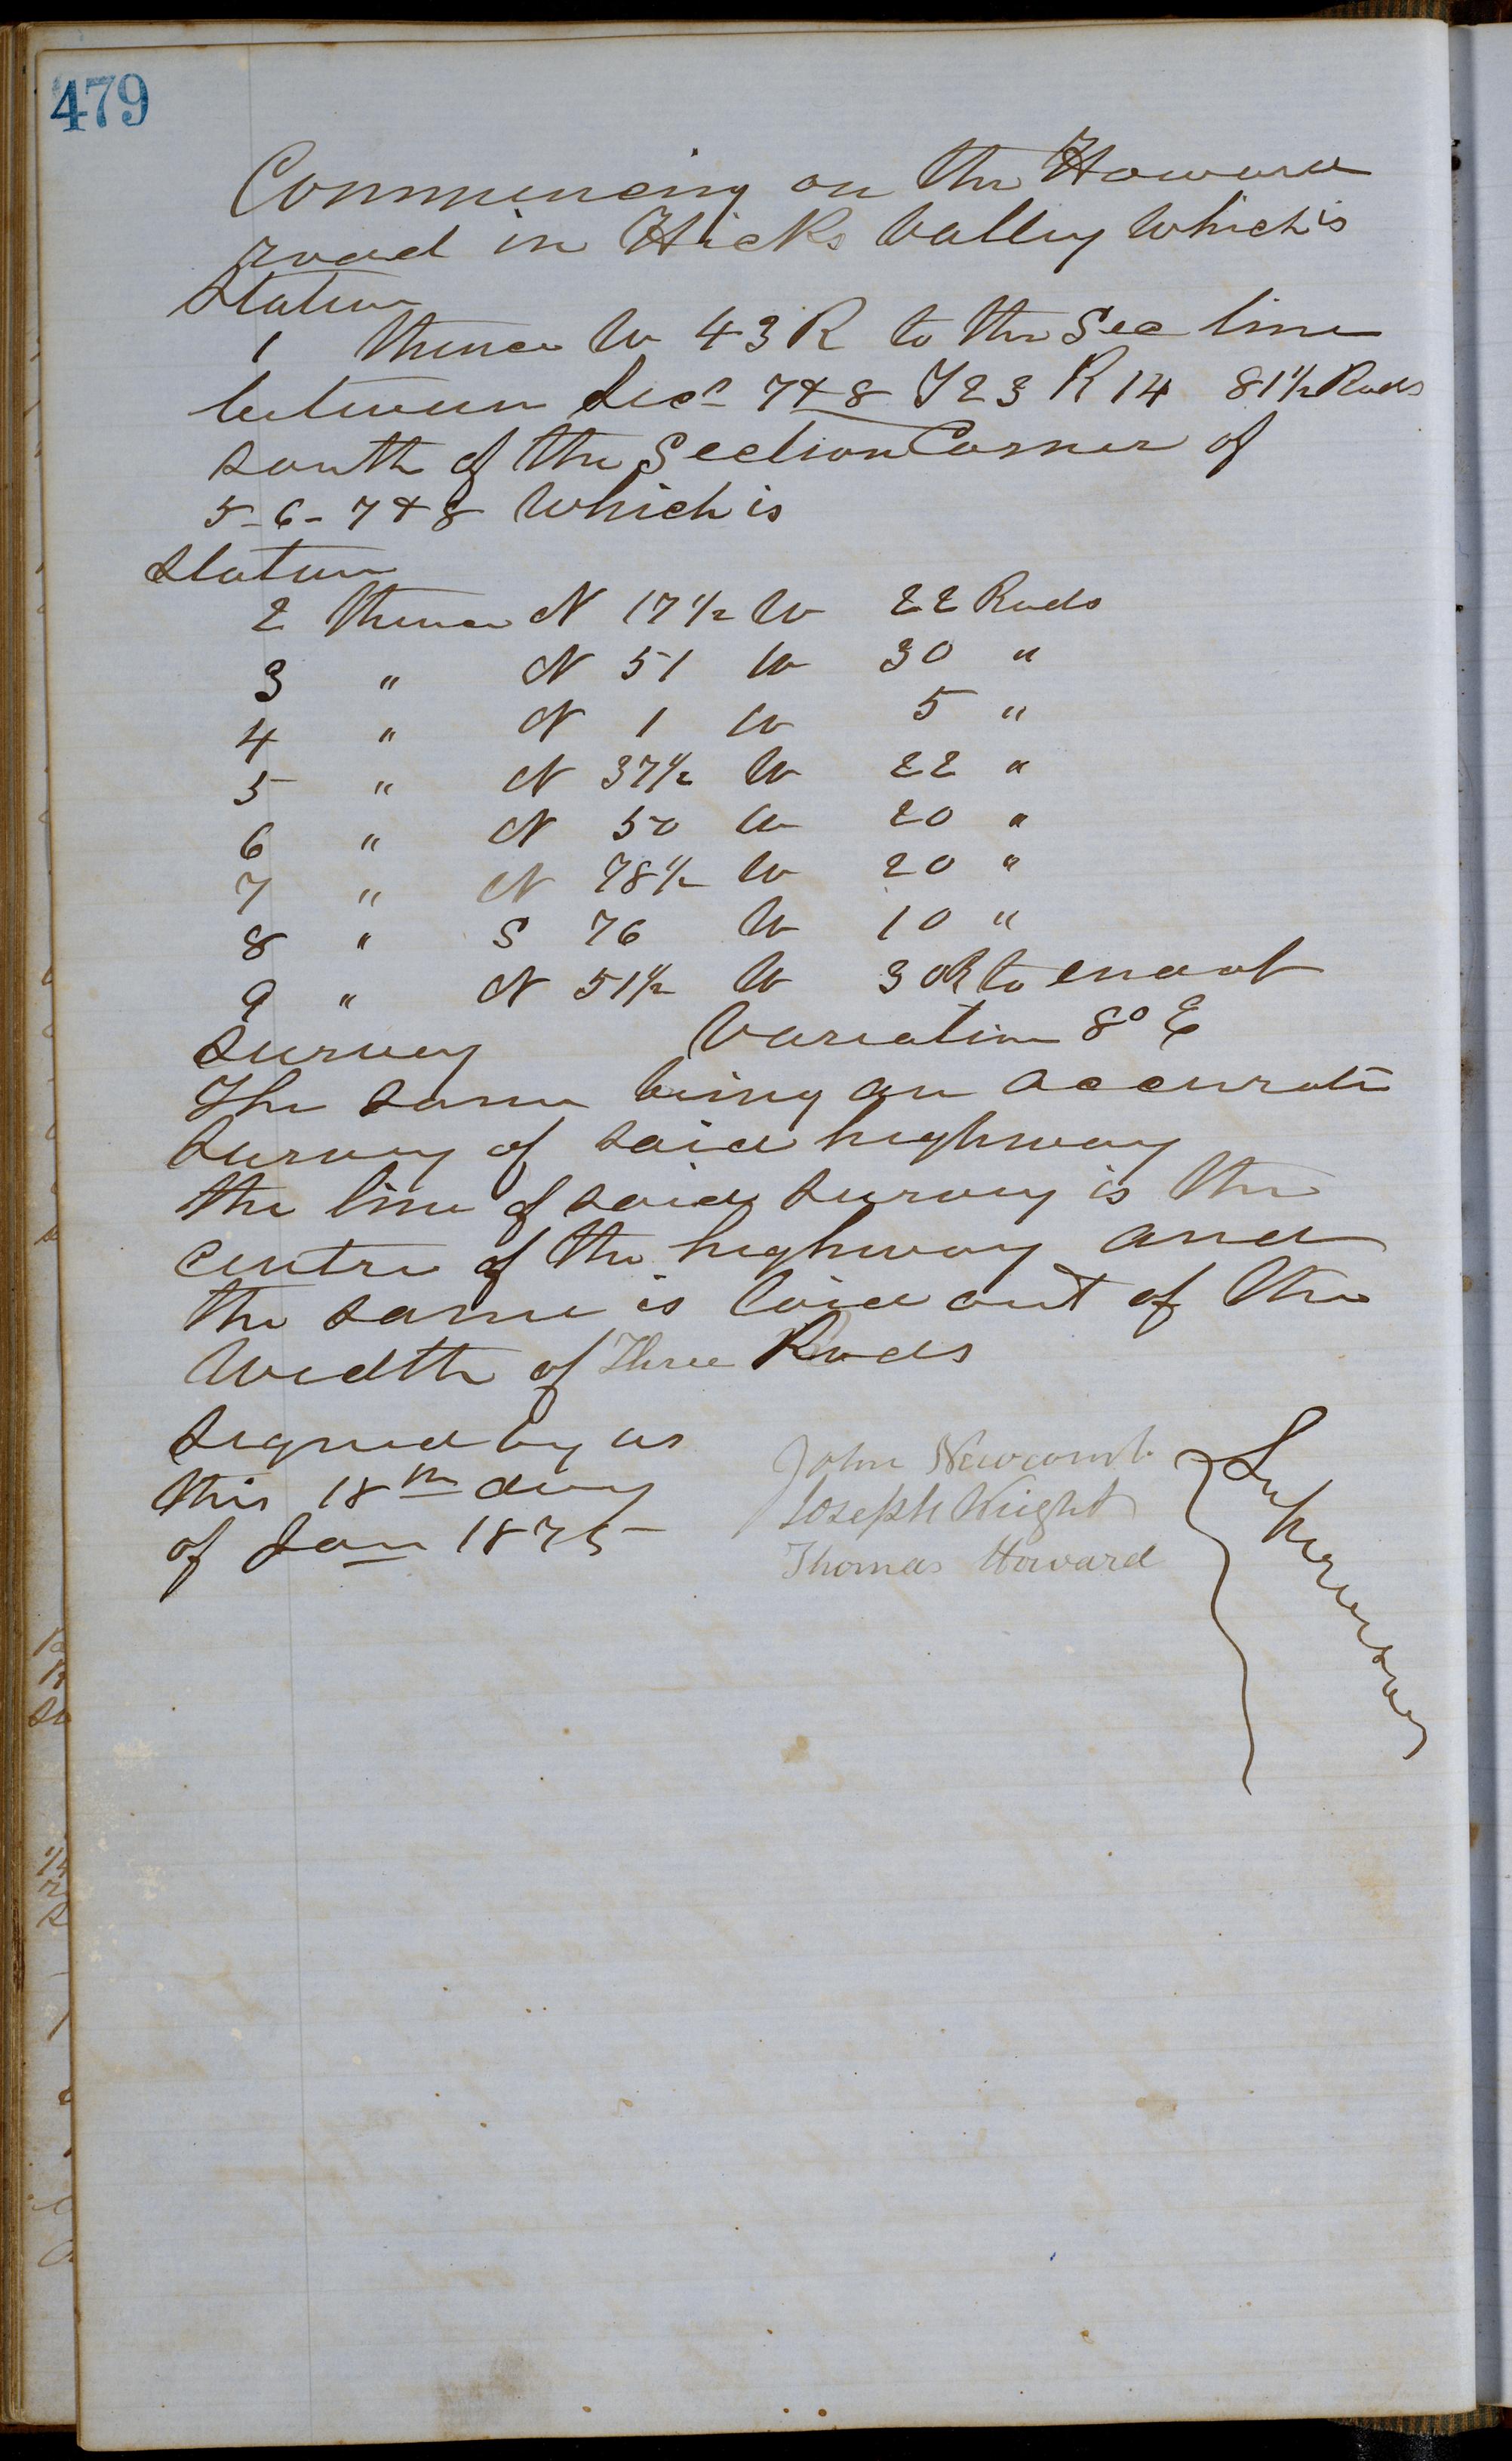 479
Commencing on the Howard
road in Hicks Valley which is
Station
1 thence W 43 R to the Sec line
between Secs 7 & 8 T 23 R 14 81 1/2 Rods
south of the Section Corner of
5-6-7 & 8 which is
Station
2 thence N 17 1/2 W 22 Rods
3 " N 51 W 30 "
4 " N 1 W 5 "
5 " N 37 1/2 W 22 "
6 " N 50 W 20 "
7 " N 78 1/2 W 20 "
8 " S 76 W 10 "
9 " N 51 1/2 W 30 R to end of
survey Variation 8° E
The same being an accurate
survey of said highway
the line of said survey is the
centre of the highway and
the same is laid out of the
width of Three Rods
signed by us
this 18th day
of Jan 1875
John Newcomb
Joseph Wright
Thomas Howard
Supervisors